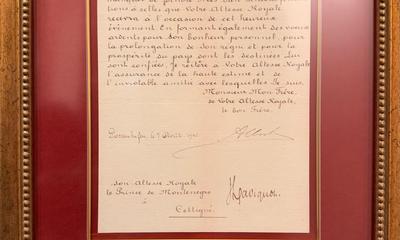 manquer de joindre Mes
tions à celles que Votre Altesse Royale
recevra à l'occasion de cet heureux
événement. En formant également des voeux
ardents pour Son bonheur personnel, pour
la prolongation de Son règne et pour la
prospérité du pays dont les destinées Lui
sont confiées, Je réitère à Votre Altesse Royale
l'assurance de la haute estime et de
l'inviolable amitié avec lesquelles Je suis,
Monsieur Mon Frère,
de Votre Altesse Royale,
le bon Frère,
Son Altesse Royale
le Prince de Monténégro
à
Cettigné.